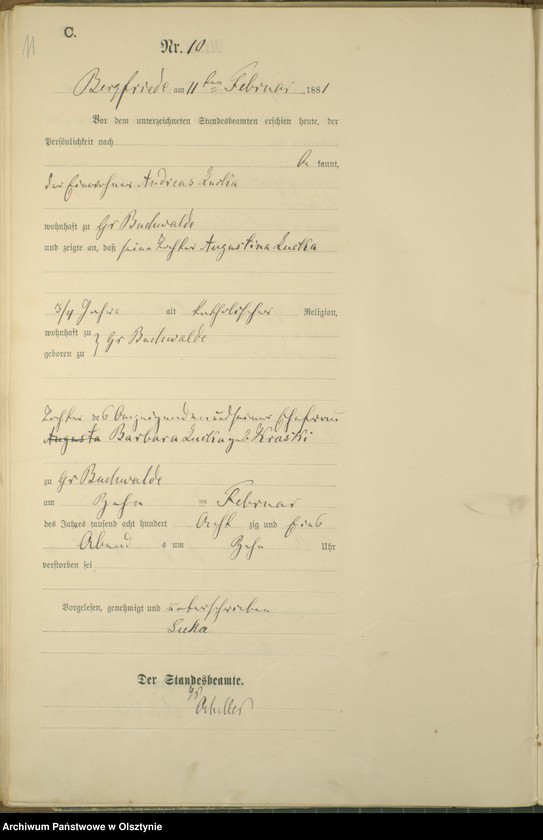 11
C.
Nr. 10
Bergfriede am 11 ten Februar 1881
Vor dem unterzeichneten Standesbeamten erschien heute, der
Persönlichkeit nach
be kannt,
der Einwohner Andreas Lucka
wohnhaft zu Gr Buchwalde
und zeigte an, daß seine Tochter Augustina Lucka
3/4 Jahre alt katholischer Religion,
wohnhaft zu
geboren zu } Gr Buchwalde
Tochter des Anzeigenden und seiner Ehefrau
Augusta Barbara Lucka geb Kraski
zu Gr Buchwalde
am Zehn ten Februar
des Jahres tausend acht hundert Acht zig und Eins
Abend s um Zehn Uhr
verstorben sei
Vorgelesen, genehmigt und unterschrieben
Lucka
Der Standesbeamte.
Archiwum Państwowe w Olsztynie